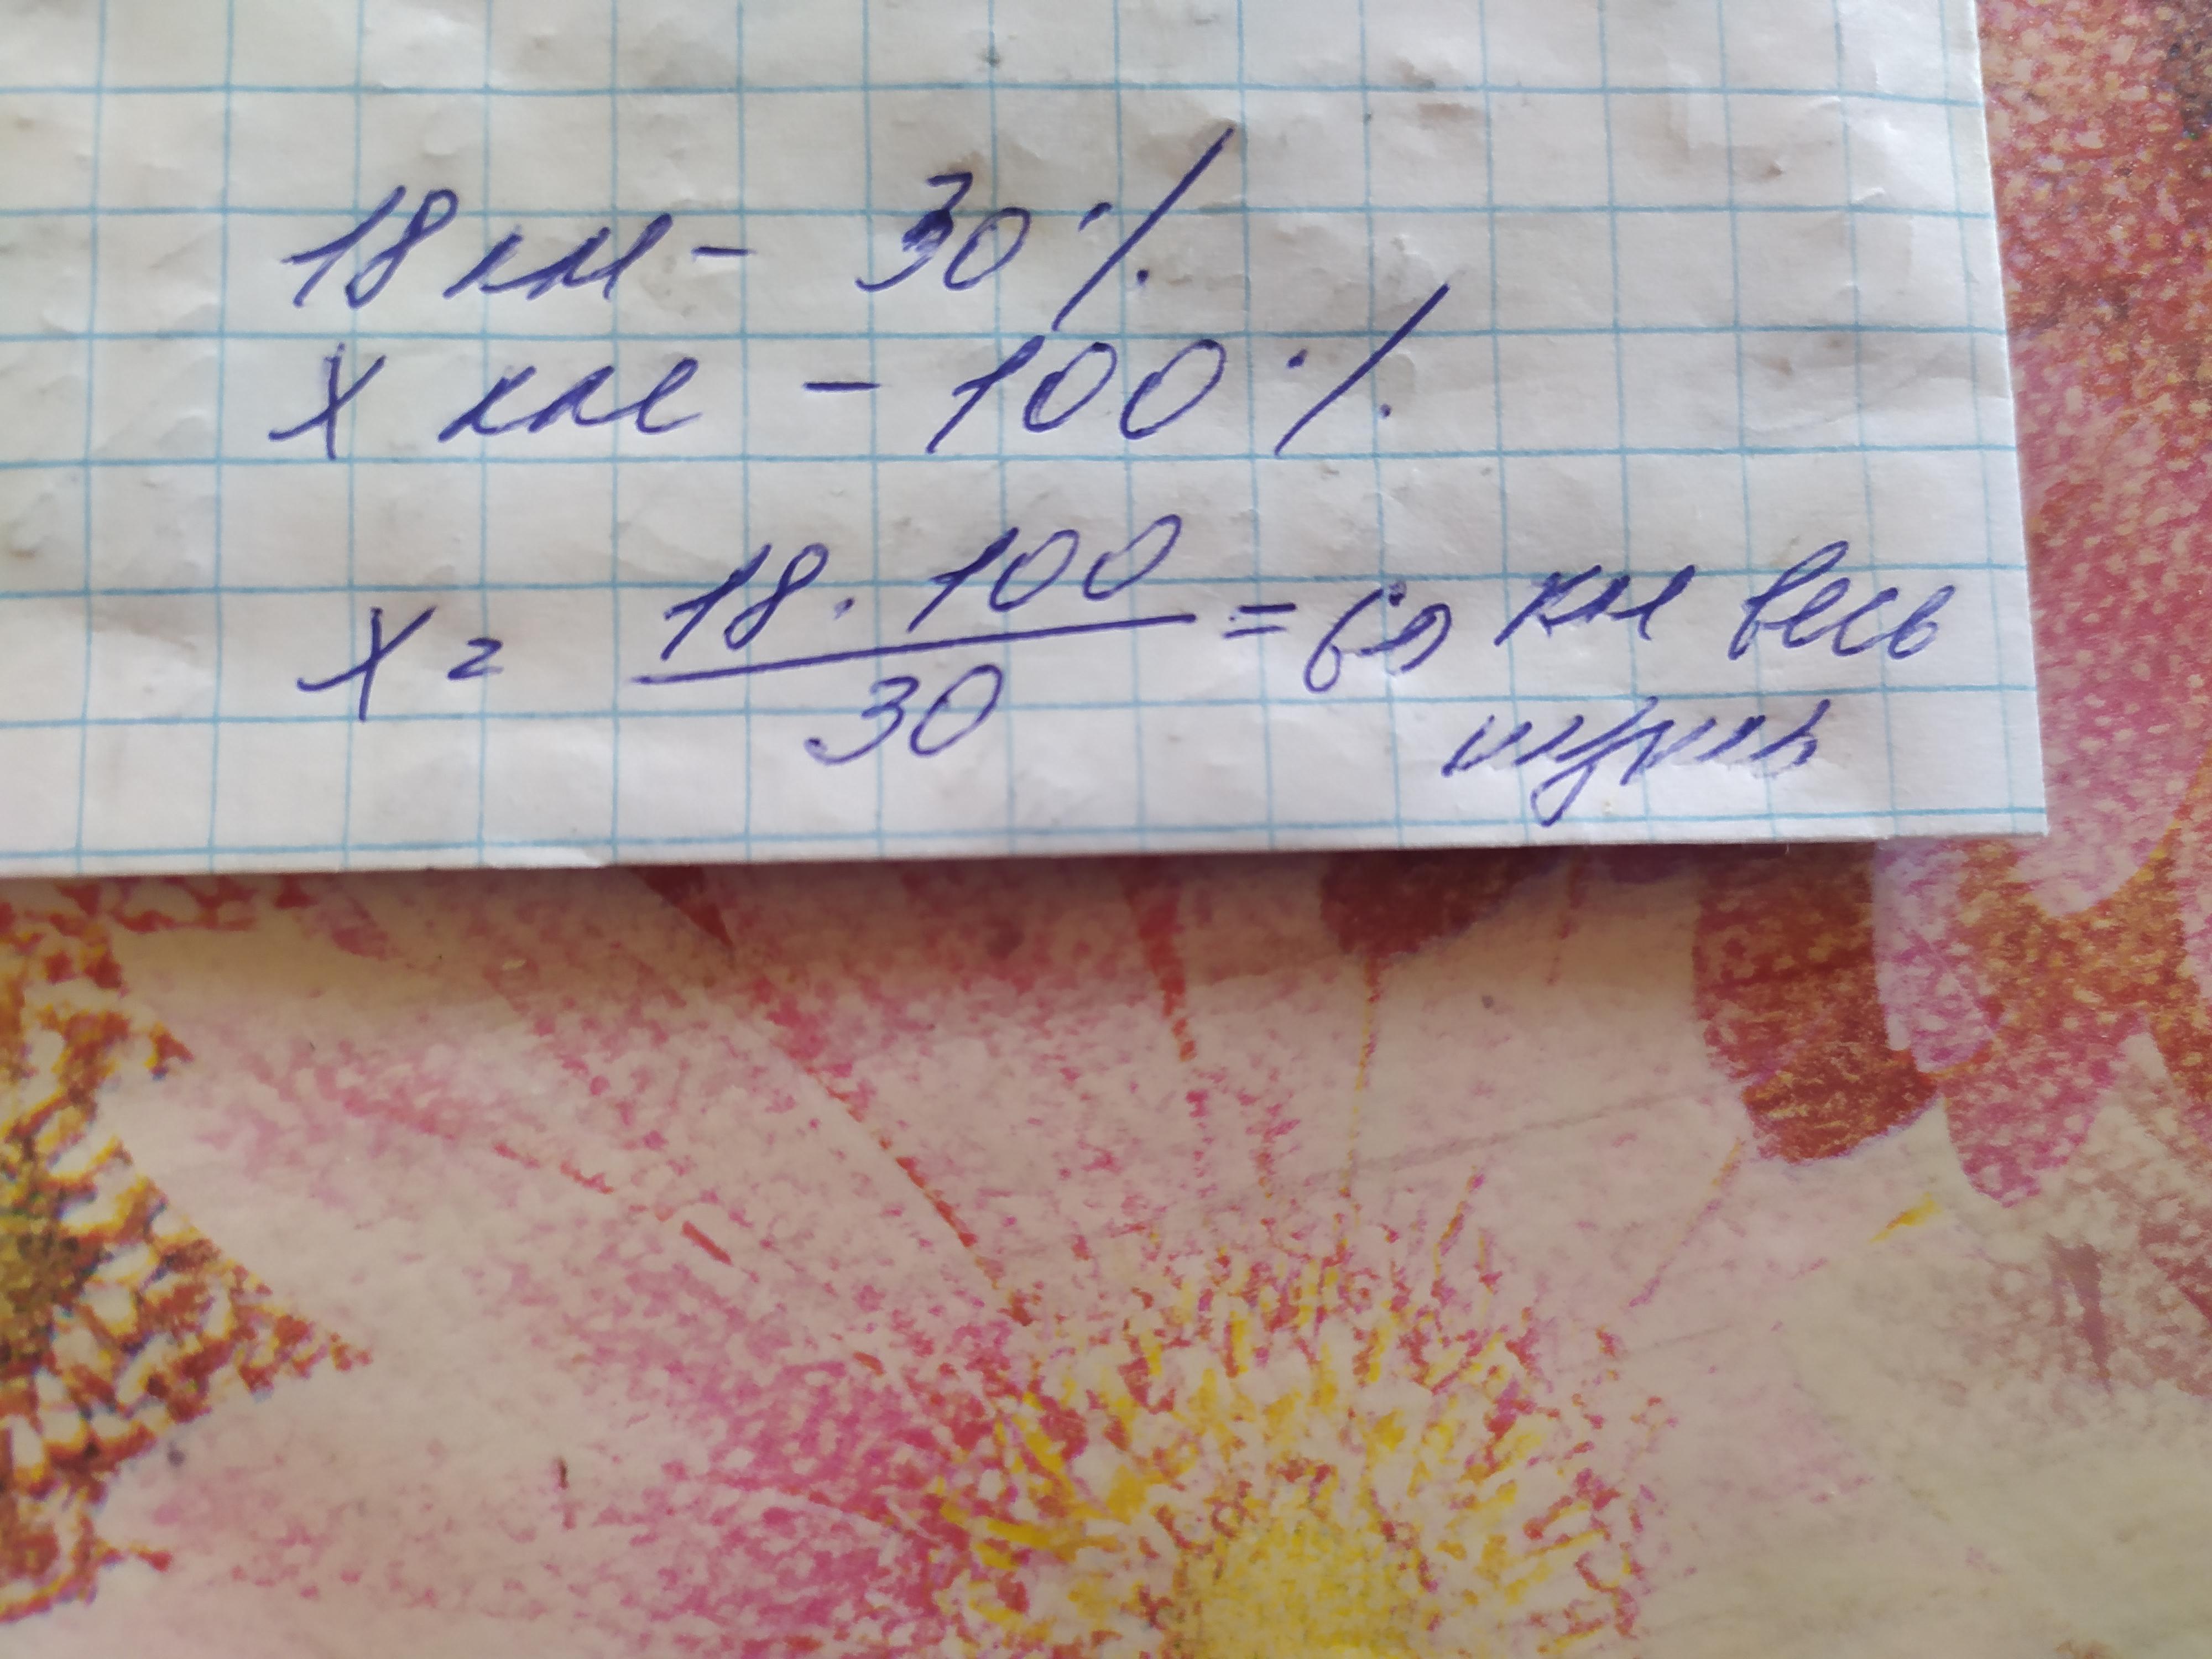 18 км - 30 %
х км - 100 %
х = 18 · 100 / 30 = 60 км весь
путь